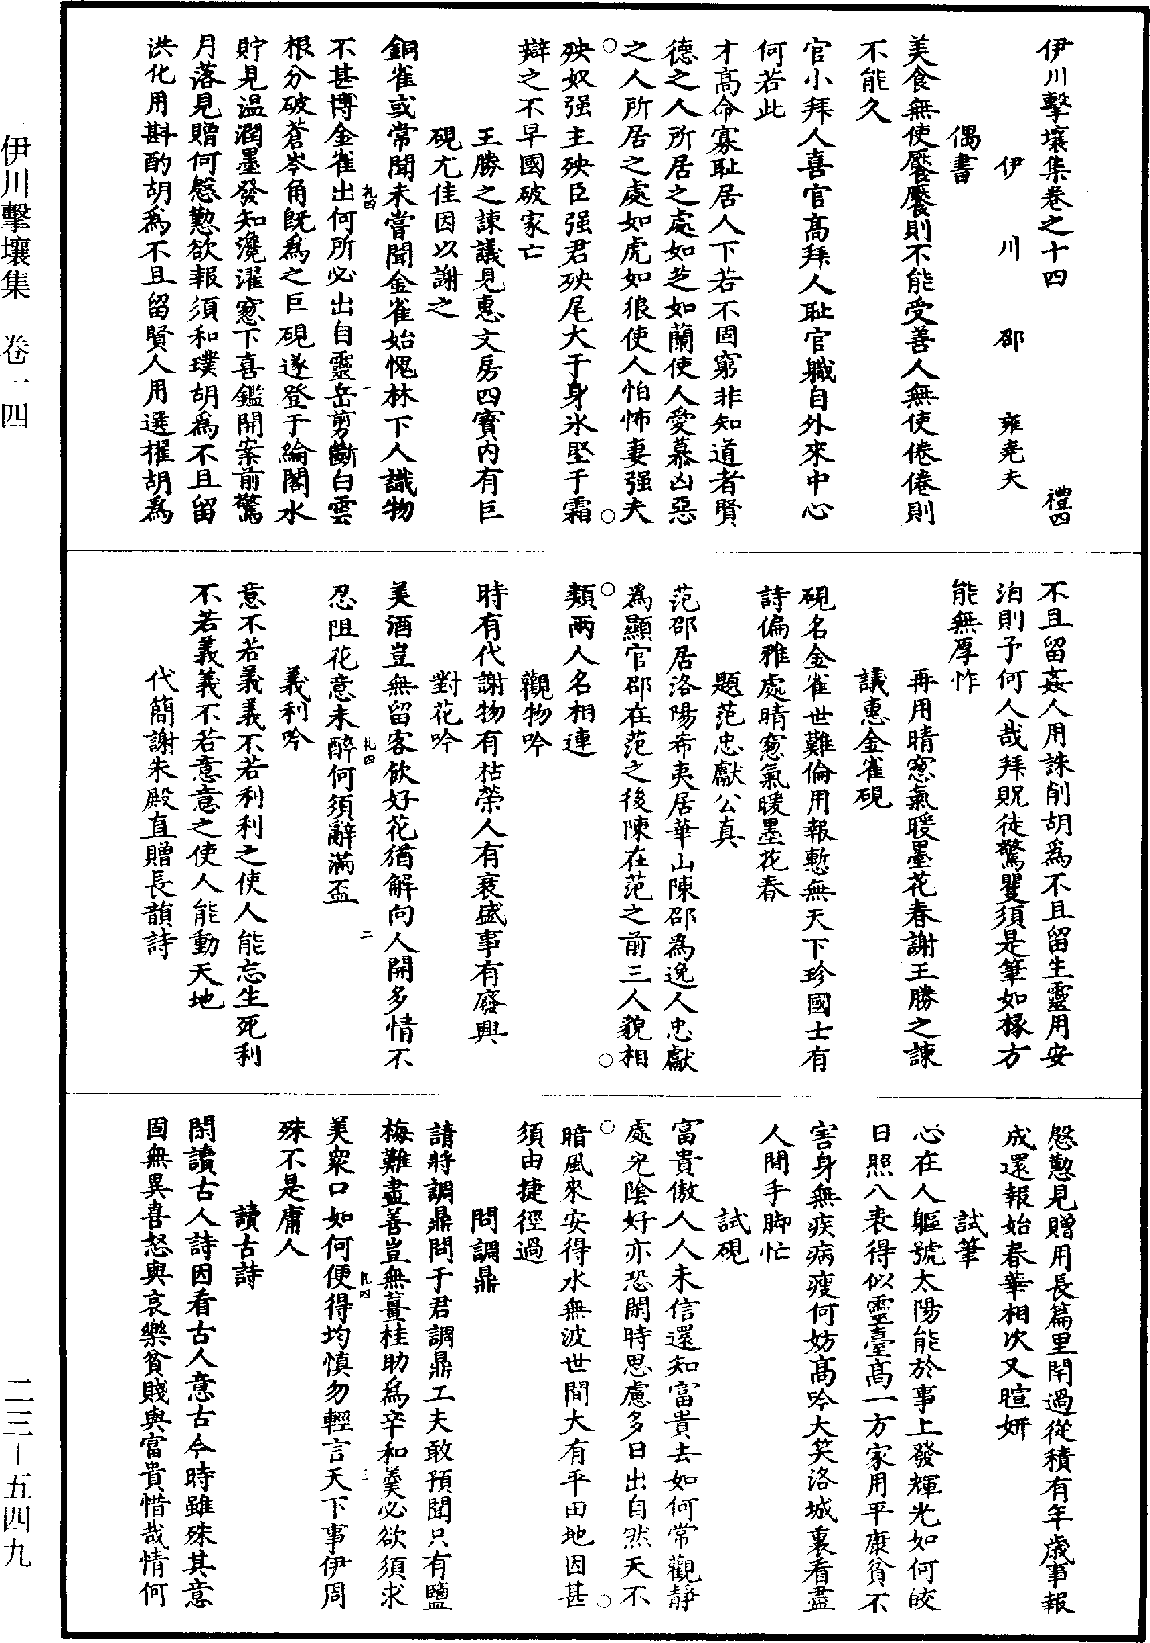 伊川擊壤集卷之十四　禮四
伊川邵雍堯夫
偶書
美食無使饜饜則不能受善人無使倦倦則
不能久
官小拜人喜官高拜人恥官職自外來中心
何若此
才高命寡恥居人下若不固窮非知道者賢
德之人所居之處如芝如蘭使人愛慕凶惡
之人所居之處如虎如狼使人怕怖妻强夫
殃奴强主殃臣强君殃尾大于身冰堅于霜
辯之不早國破家亡
王勝之諫議見惠文房四寶內有巨
硯尤佳因以謝之
銅雀或常聞未嘗聞金雀始愧林下人識物
不甚博金雀出何所必出自靈岳剪斷白雲
根分破蒼岑角旣爲之巨硯遂登于綸閣水
貯見温潤墨發知瀺濯窻下喜鑑開案前驚
月落見贈何慇懃欲報須和璞胡爲不且留
洪化用斟酌胡爲不且留賢人用選擢胡爲
不且留姦人用誅削胡爲不且留生靈用安
泊則予何人哉拜貺徒驚矍須是筆如椽方
能無厚怍
再用晴窻氣暖墨花春謝王勝之諫
議惠金雀硯
硯名金雀世難倫用報慙無天下珍國士有
詩偏雅處晴窻氣暖墨花春
題范忠獻公真
范邵居洛陽希夷居華山陳邵爲逸人忠獻
爲顯官邵在范之後陳在范之前三人貌相
類兩人名相連
觀物吟
時有代謝物有枯榮人有衰盛事有廢興
對花吟
美酒豈無留客飲好花猶解向人開多情不
忍阻花意未醉何須辭滿盃
義利吟
意不若義義不若利利之使人能忘生死利
不若義義不若意意之使人能動天地
代簡謝朱殿直贈長韻詩
慇懃見贈用長篇里閈過從積有年歲事報
成還報始春華相次又暄妍
試筆
心在人軀號太陽能於事上發輝光如何皎
日照八表得似靈臺高一方家用平康貧不
害身無疾病瘦何妨高吟大笑洛城裏看盡
人間手脚忙
試硯
富貴傲人人未信還知富貴去如何常觀靜
處光陰好亦恐閑時思慮多日出自然天不
暗風來安得水無波世間大有平田地因甚
須由捷徑過
問調鼎
請將調鼎問于君調鼎工夫敢預聞只有鹽
梅難盡善豈無薑桂助爲辛和羹必欲須求
美衆口如何便得均慎勿輕言天下事伊周
殊不是庸人
讀古詩
閑讀古人詩因看古人意古今時雖殊其意
固無異喜怒與哀樂貧賤與富貴惜哉情何
伊川擊壤集　卷一四
二三—五四九